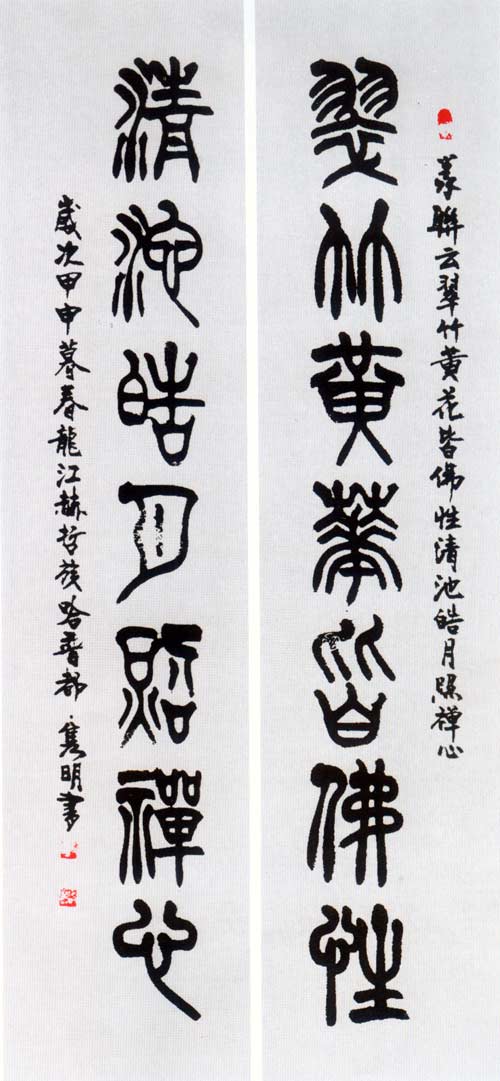 聯云翠竹黃花皆佛性清池皓月照禪心
翠竹黃華皆佛性
清池皓月照禪心
歲次甲申暮春龍江赫哲族哈普都·隽明書